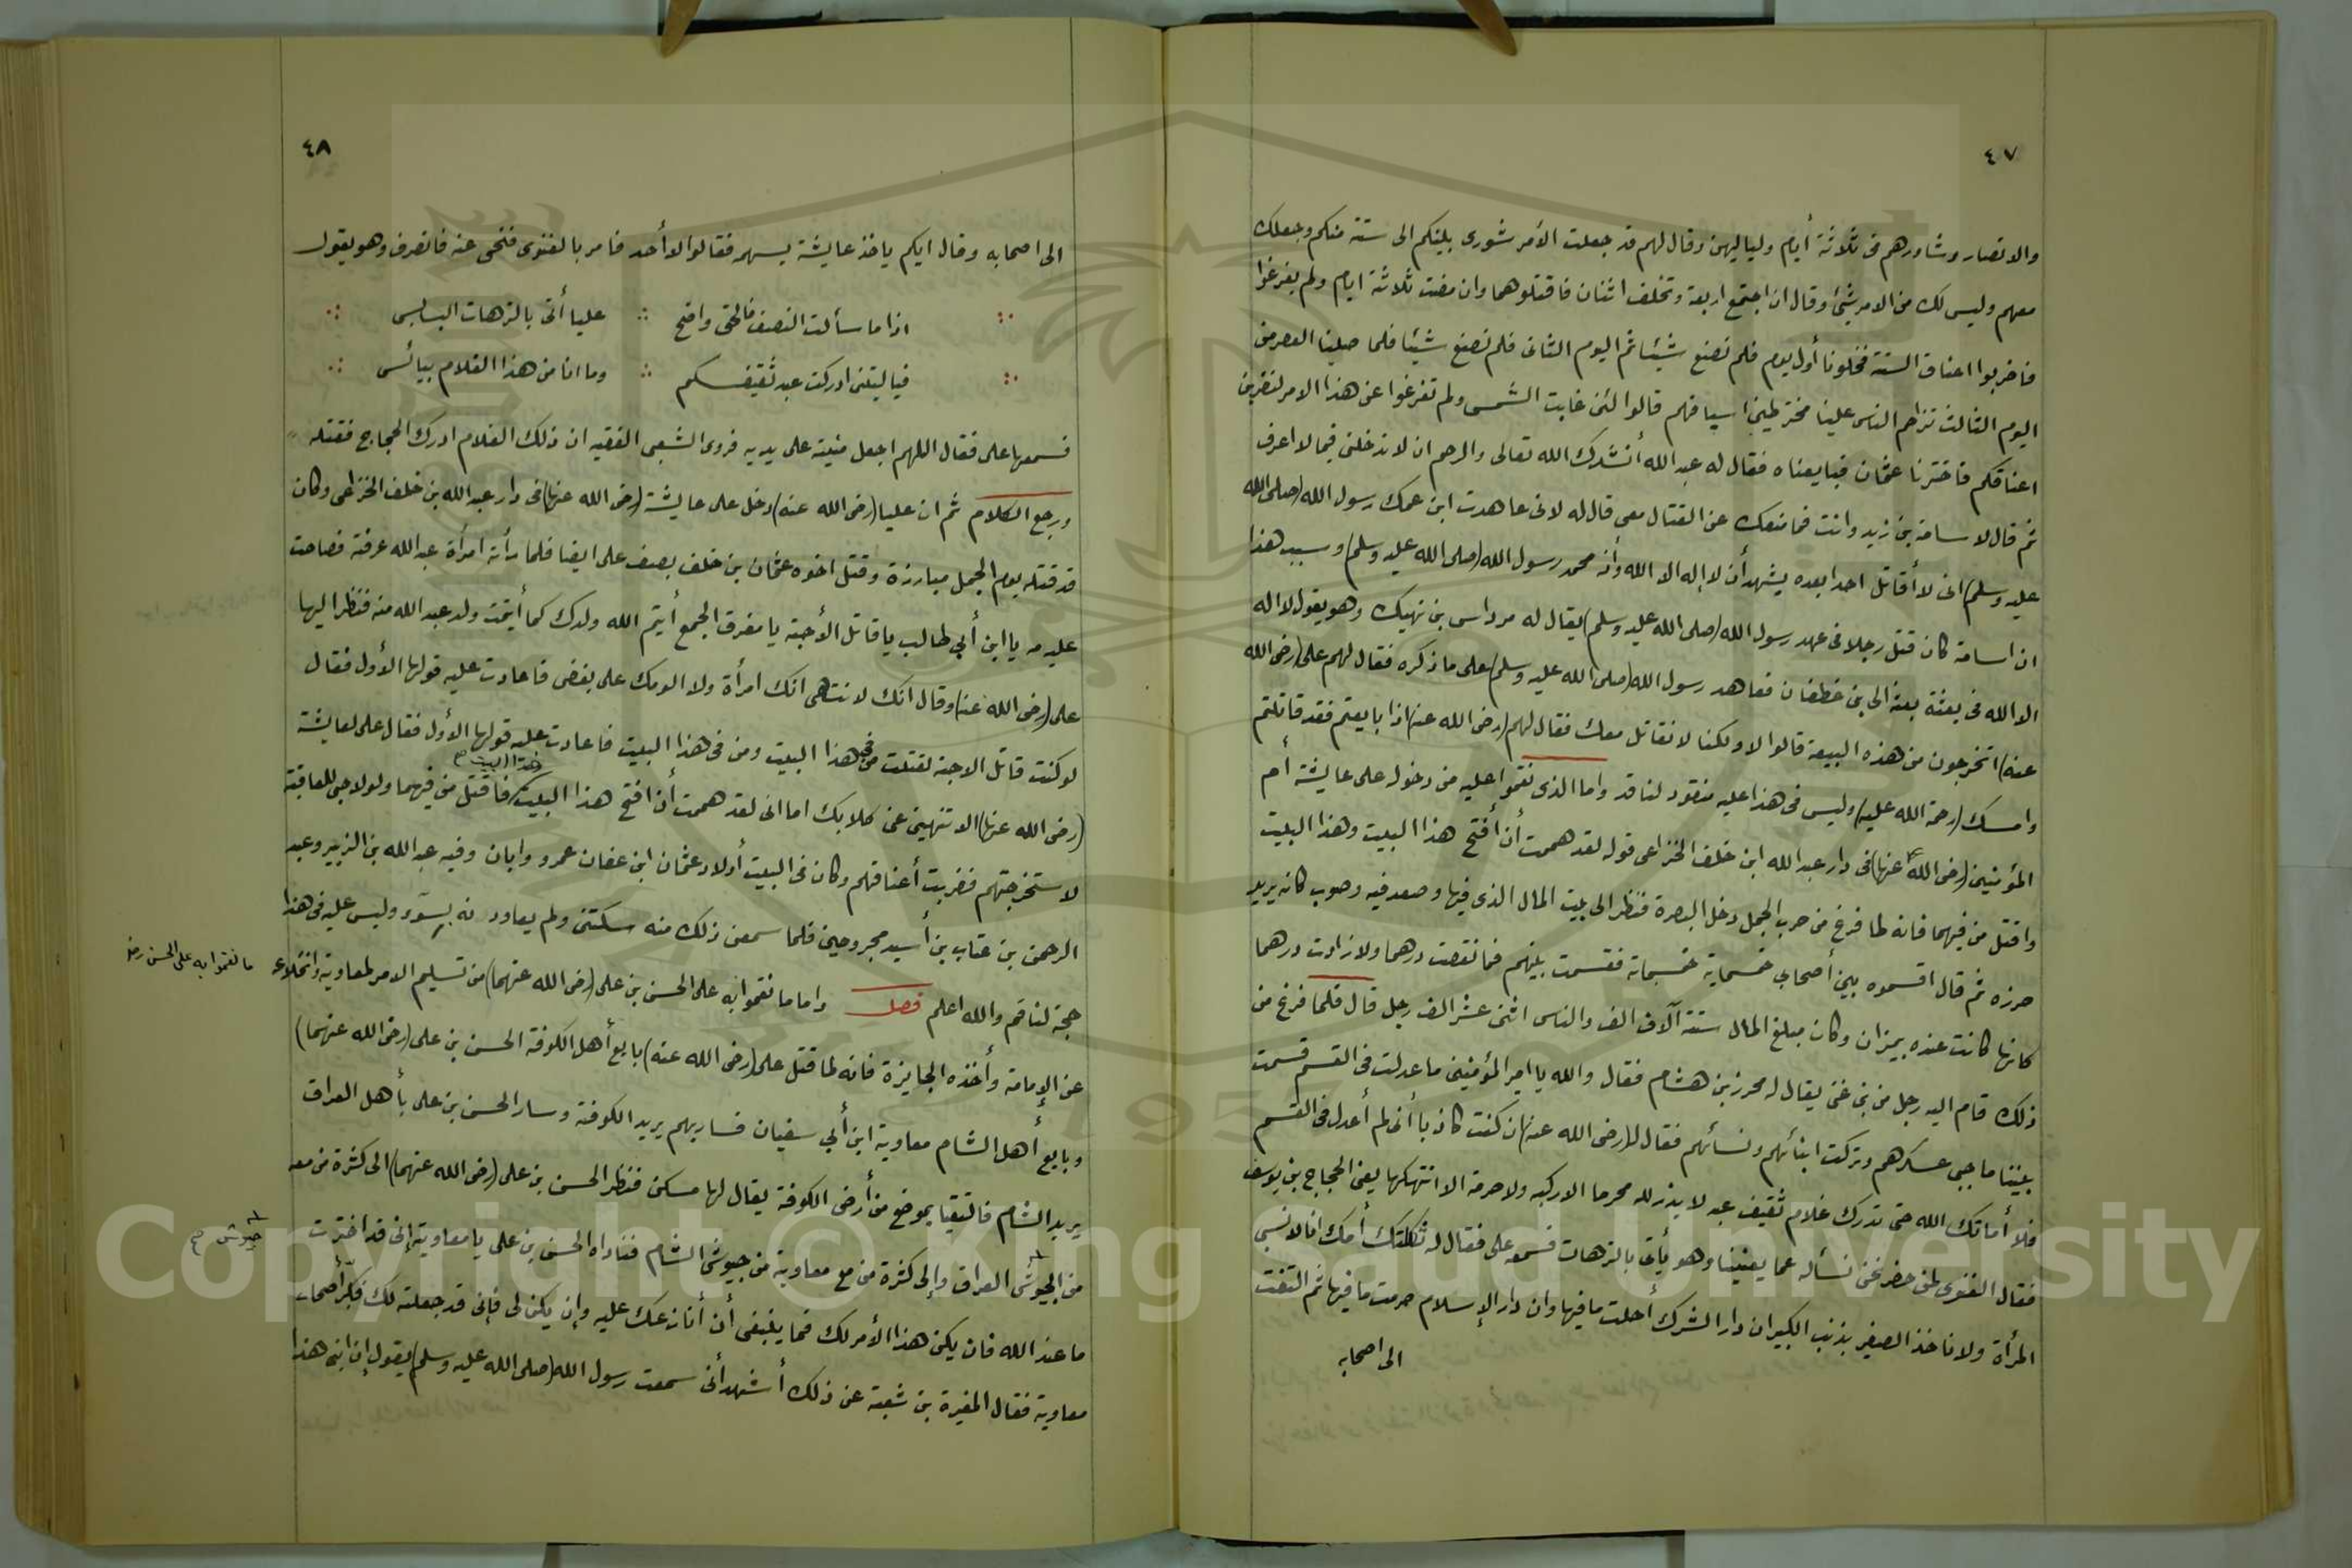 ٤٧
والانصار وشاورهم فى ثلاثة أيام ولياليهن وقال لهم قد جعلت الأمر شورى بينكم الى ستة منكم وجعلك
معهم وليس لك من الامر شيئ وقال ان اجتمع اربعة وتخلف اثنان فاقتلوهما وان مضت ثلاثة ايام ولم يفرغوا
فاضربوا اعناق الستة فخلونا أول يوم فلم نصنع شيئا ثم اليوم الثانى فلم نصنع شيئا فلما صلينا العصر من
اليوم الثالث تزاحم الناس علينا مخترطين اسيافهم قالوا لئن غابت الشمس ولم تفرغوا عن هذا الامر لنضربن
اعناقكم فاخترنا عثمان فبايعناه فقال له عبد الله أنشدك الله تعالى والرحم ان لا تدخلنى فيما لا اعرف
ثم قال لاسامة بن زيد وانت فما منعك عن القتال معى قال له لانى عاهدت ابن عمك رسول الله (صلى الله
عليه وسلم) انى لا أقاتل احدا بعده يشهد أن لا إله الا الله وأنه محمد رسول الله (صلى الله عليه وسلم) وسبب هذا
ان اسامة كان قتل رجلا فى عهد رسول الله (صلى الله عليه وسلم) يقال له مرداس بن نهيك وهو يقول لا اله
الا الله فى بعثة بعثه الى بنى غطفان فعاهد رسول الله (صلى الله عليه وسلم) على ما ذكره فقال لهم على (رضى الله
عنه) اتخرجون من هذه البيعة قالوا لا ولكنا لا نقاتل معك فقال لهم (رضى الله عنه) اذا بايعتم فقد قاتلتم
وامسك (رحمة الله عليه) وليس فى هذا عليه منقود لناقد واما الذى نقموا عليه من دخوله على عايشة أم
المؤمنين (رضى الله عنها) فى دار عبد الله ابن خلف الخزاعى قوله لقد هممت أن أفتح هذا البيت وهذا البيت
واقتل من فيهما فانه لما فرغ من حرب الجمل دخل البصرة فنظر الى بيت المال الذى فيها وصعد فيه وصوب كانه يريد
حرزه ثم قال اقسموه بين أصحابى خمسماية خمسماية فقسمت بينهم فما نقصت درهما ولا زادت درهما
كانها كانت عنده بميزان وكان مبلغ المال ستة آلاف الف والناس اثنى عشر الف رجل قال فلما فرغ من
ذلك قام اليه رجل من بنى غنى يقال له محرز بن هشام فقال والله يا امير المؤمنين ما عدلت فى القسم قسمت
بيننا ما جبى عسكرهم وتركت ابنائهم ونسائهم فقال له (رضى الله عنه) ان كنت كاذبا أنى لم أعدل فى القسم
فلا أماتك الله حتى تدرك غلام ثقيف عبد لا يذر لله محرما الا ركبه ولا حرمة الا انتهكها يعنى الحجاج بن يوسف
فقال الغنوى لمن حضر نحن نسأله عما يعنينا وهو يأتى بالترهات فسمعه على فقال له ثكلتك أمك انا لا نسبى
المرأة ولا ناخذ الصغير بذنب الكبير ان دار الشرك أحلت ما فيها وان دار الإسلام حرمت ما فيها ثم التفت
الى اصحابه
٤٨
الى اصحابه وقال ايكم ياخذ عايشة بسهمه فقالوا لا أحد فامر بالغنوى فنحى عنه فانصرف وهو يقول
اذا ما سألت النصف فالحق واضح ∴ عليا أتى بالترهات البسابس
فياليتنى ادركت عبد ثقيفكم ∴ وما انا من هذا الغلام بيائس
فسمعها على فقال اللهم اجعل منيته على يديه فروى الشعبى الفقيه ان ذلك الغلام ادرك الحجاج فقتله
ورجع الكلام ثم ان عليا (رضى الله عنه) دخل على عايشة (رضى الله عنها) فى دار عبد الله بن خلف الخزاعى وكان
قد قتله يوم الجمل مبارزة وقتل اخوه عثمان بن خلف بصف على ايضا فلما رأته امرأة عبد الله عرفته فصاحت
عليه مه يا ابن أبي طالب يا قاتل الأحبة يا مفرق الجمع أيتم الله ولدك كما أيتمت ولد عبد الله منه فنظر اليها
على (رضى الله عنه) وقال انك لا تنتهى انك امرأة ولا الومك على بغضى فاعادت عليه قولها الأول فقال
لو كنت قاتل الاحبة لقتلت من فى هذا البيت ومن فى هذا البيت فاعادت عليه قولها الأول فقال على لعايشة
(رضى الله عنها) الا تنهين عنى كلابك اما انى لقد هممت أن افتح هذا البيت وهذا البيت صح فاقتل من فيهما ولولا حبى للعافية
لاستخرجتهم فضربت أعناقهم وكان فى البيت أولاد عثمان ابن عفان عمرو وابان وفيه عبد الله بن الزبير وعبد
الرحمن بن عتاب بن أسيد مجروحين فلما سمعن ذلك منه سكتن ولم يعاودنه بسوء وليس عليه فى هذا
حجة لناقم والله اعلم فصل واما ما نقموا به على الحسن بن على (رضى الله عنهما) من تسليم الامر لمعاوية وانخلاعه
ما نقموا به على الحسن رضى
عن الإمامة وأخذه الجايزة فانه لما قتل على (رضى الله عنه) بايع أهل الكوفة الحسن بن على (رضى الله عنهما)
وبايع أهل الشام معاوية ابن أبي سفيان فسار بهم يريد الكوفة وسار الحسن بن على بأهل العراق
يريد الشام فالتقيا بموضع من أرض الكوفة يقال لها مسكن فنظر الحسن بن على (رضى الله عنهما) الى كثرة من معه
من الجيوش العراق وإلى كثرة من مع معاوية من جيوش الشام فناداه الحسن بن على يا معاوية إنى قد اخترت
جيوش صح
ما عند الله فان يكن هذا الأمر لك فما ينبغى أن أنازعك عليه وإن يكن لى فإنى قد جعلته لك فكبر أصحاب
معاوية فقال المغيرة بن شعبة عن ذلك أشهد أنى سمعت رسول الله (صلى الله عليه وسلم) يقول إن ابنى هذا
Copyright © King Saud University